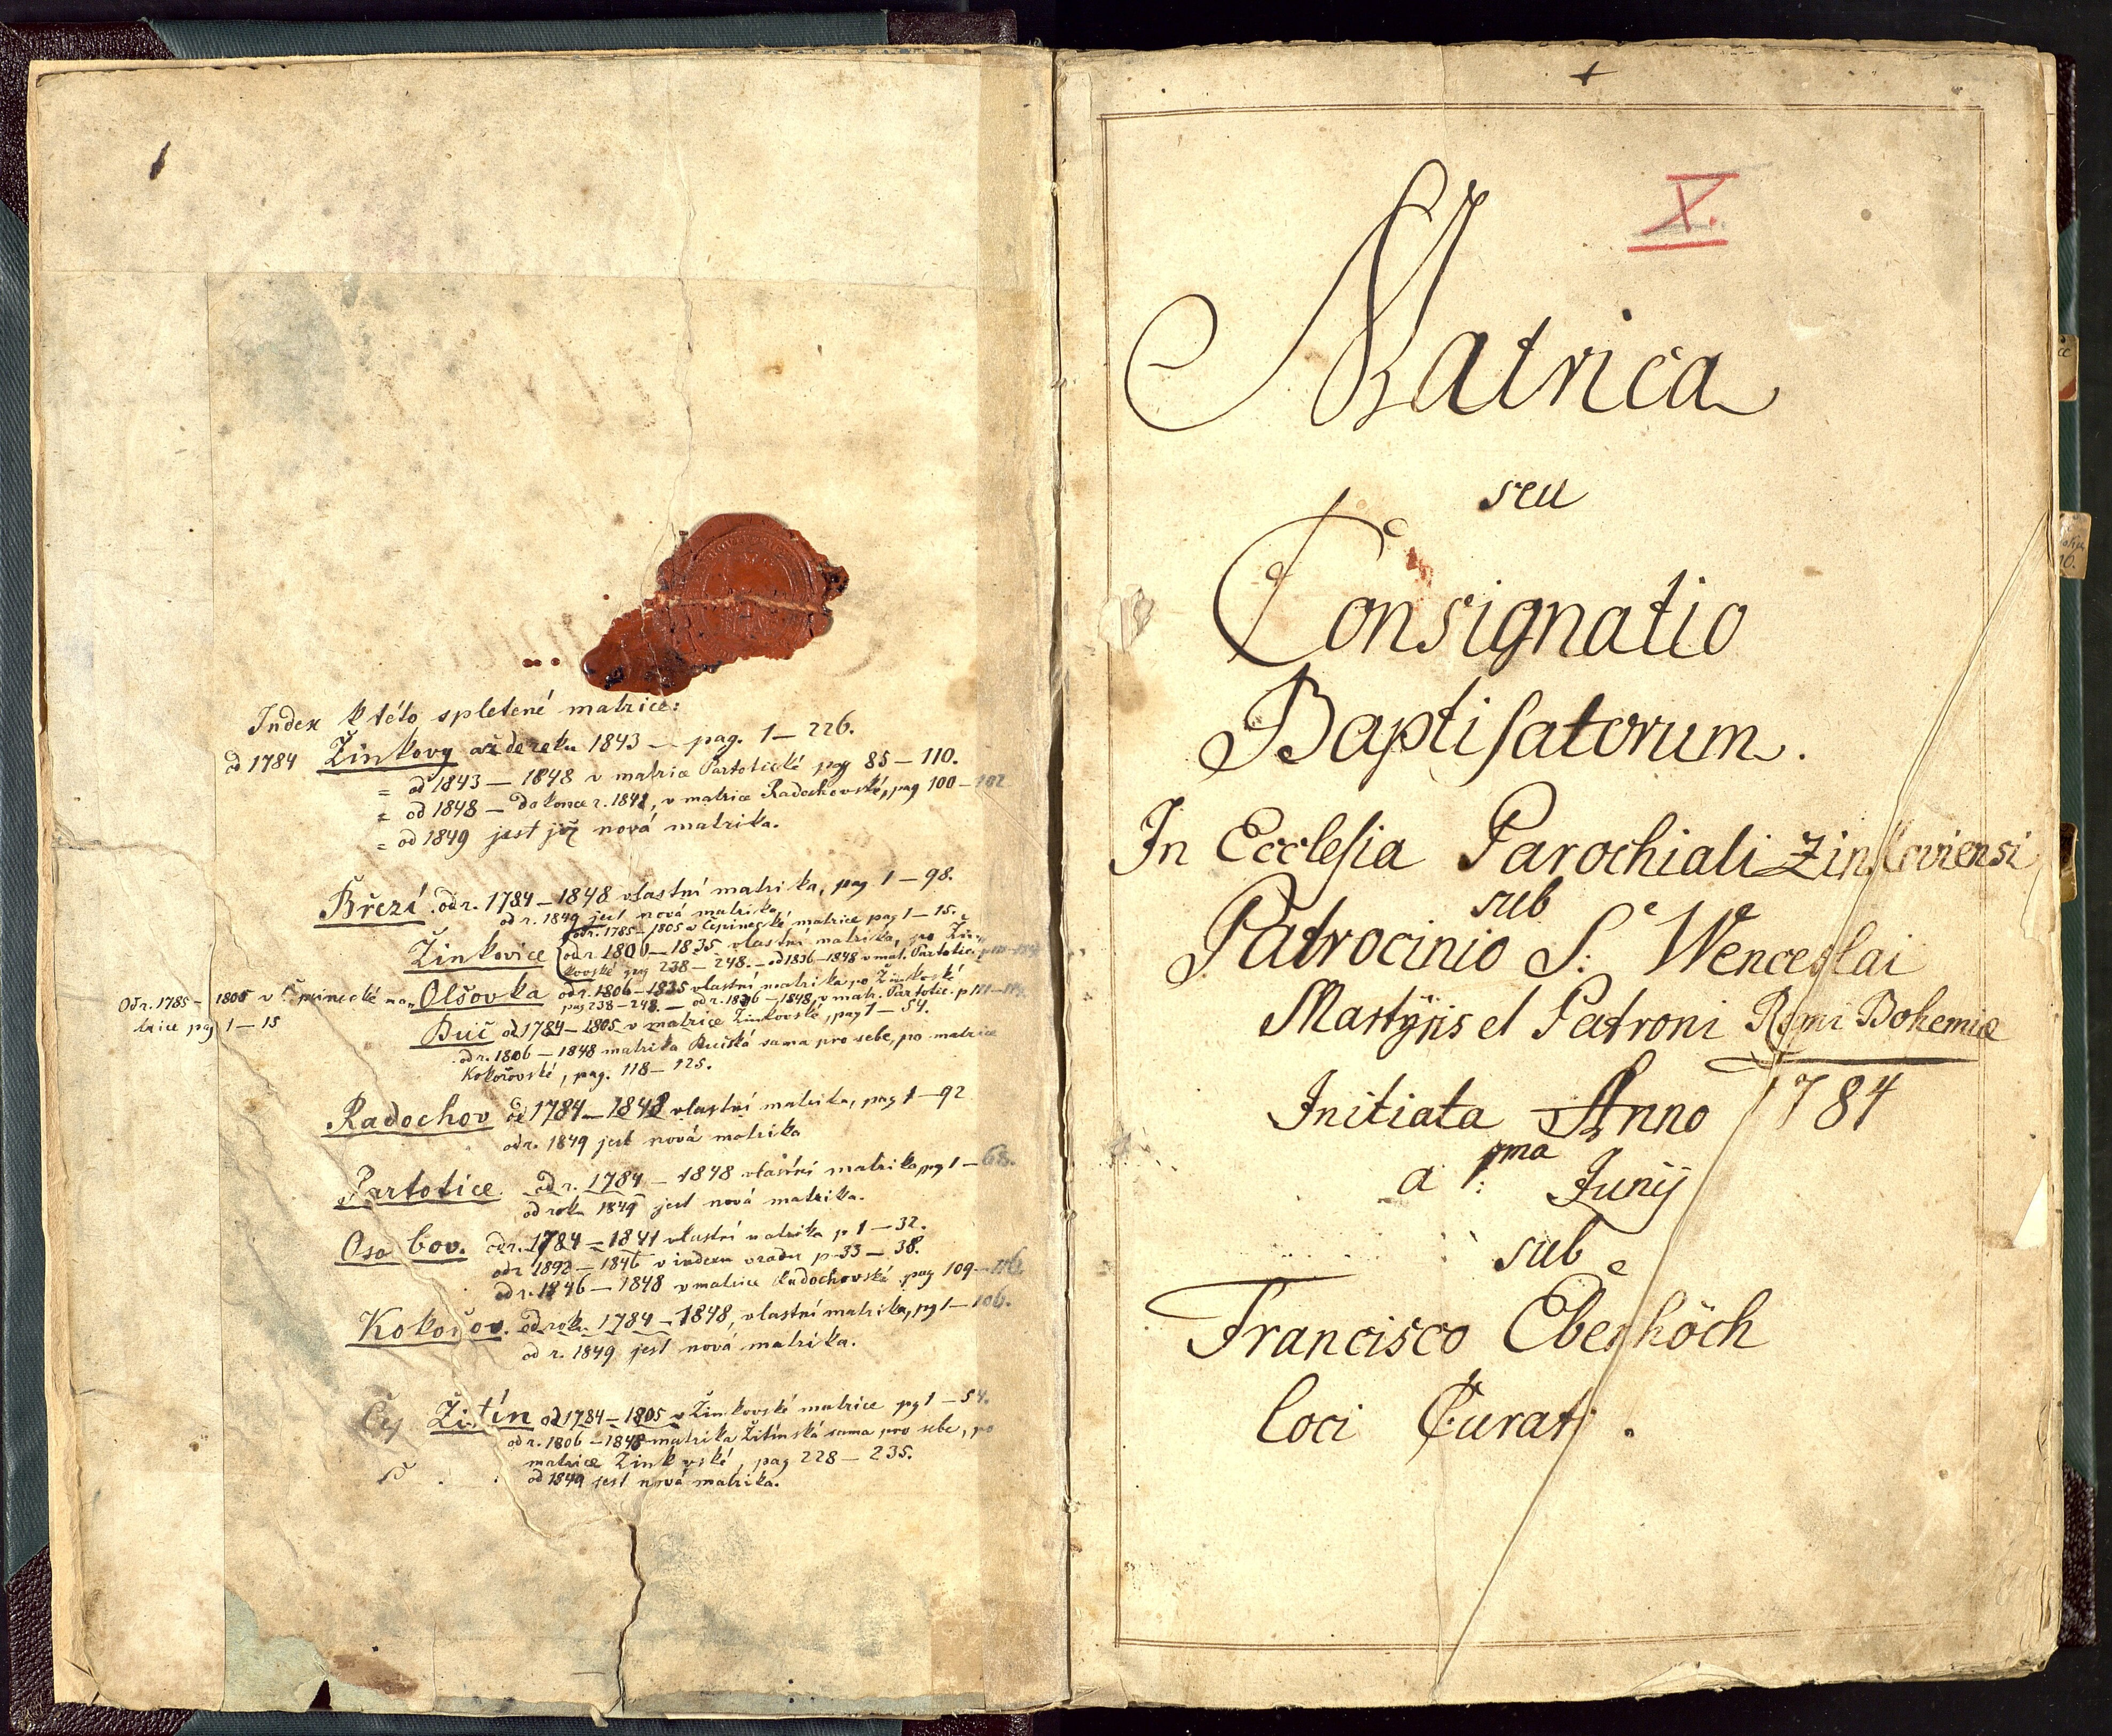 Index k této spletené matrice:
od 1784 Žinkovy až do roku 1843 — pag. 1 — 226.
= od 1843 — 1848 v matrice Partotické pag 85 — 110.
= od 1848 — do konce r. 1848, v matrice Radochovské, pag 100 — 102
= od 1849 jest již nová matrika.
Březí od r. 1784 — 1848 vlastní matrika, pag 1 — 98.
od r. 1849 jest nová matrika
Žinkovice od r. 1785 — 1805 v Čepinecké matrice pag 1 — 15.
od r. 1806 — 1835 vlastní matrika, po Žin-
kovské pag 238 — 248. — od 1836 — 1848 v mat. Partotic.
Od r. 1785 — 1805 v Čepinecké ma-
trice pag 1 — 15
Olšovka od r. 1806 — 1835 vlastní matrika po Žinkovské
pag 238 — 248 — od r. 1836 — 1848, v matr. Partotic. p
Buč od 1784 — 1805 v matrice Žinkovské, pag 1 — 54.
od r. 1806 — 1848 matrika Bučská sama pro sebe, po matrice
Kokořovské, pag. 118 — 125.
Radochov od 1784 — 1848 vlastní matrika, pag 1 — 92
od r. 1849 jest nová matrika
Partotice od r. 1784 — 1848 vlastní matrika pag 1 — 68.
od roku 1849 jest nová matrika.
Osobov. od r. 1784 — 1841 vlastní matrika p 1 — 32.
od r. 1846 — 1848 v matrice Radochovské pag 109
Kokořov. od roku 1784 — 1848, vlastní matrika, pg 1 — 106.
od r. 1849 jest nová matrika.
Žitín od 1784 — 1805 v Žinkovské matrice pg 1 — 54.
od r. 1806 — 1848 matrika Žitínská sama pro sebe, po
matrice Žinkovské, pag 228 — 235.
od 1849 jest nová matrika.
X.
Matrica
seu
Consignatio
Baptisatorum.
In Ecclesia Parochiali Zinkoviensi
sub
Patrocinio S: Wenceslai
Martyris et Patroni Regni Bohemiæ
Initiata Anno 1784
a 1ma Junij
sub
Francisco Eberhöch
loci Curato.